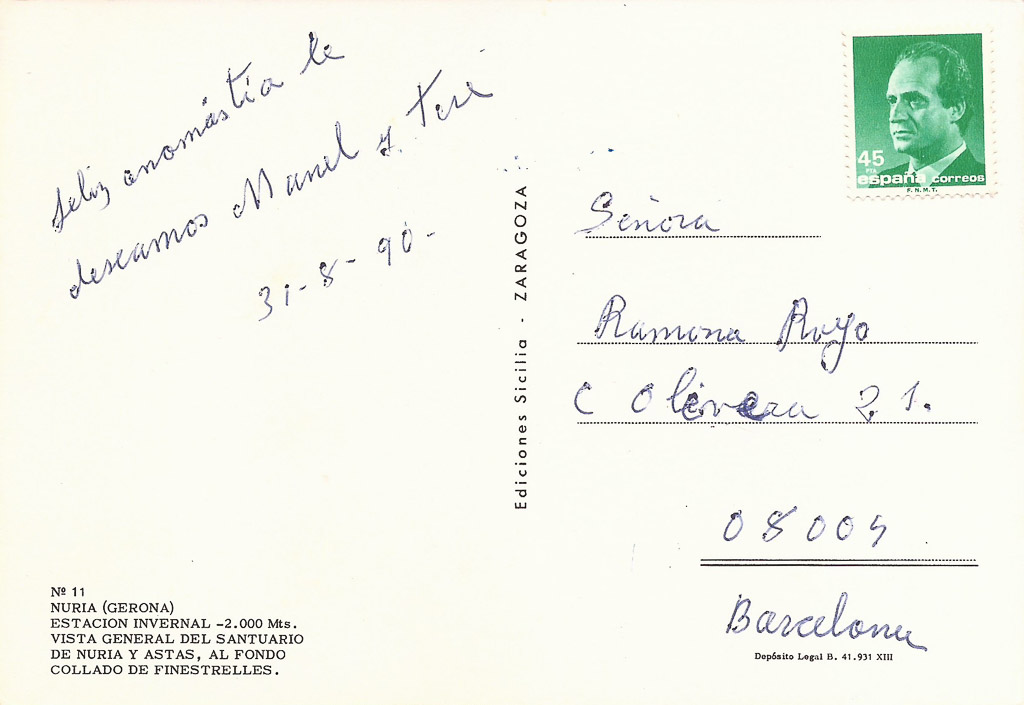 feliz anomástia le
deseamos Manel y Teré
31-8-90-
Nº 11
NURIA (GERONA)
ESTACION INVERNAL -2.000 Mts.
VISTA GENERAL DEL SANTUARIO
DE NURIA Y ASTAS, AL FONDO
COLLADO DE FINESTRELLES.
Ediciones Sicilia - ZARAGOZA
45
PTA
españa correos
F.N.M.T.
Señora
Ramona Royo
C Olivera 21.
08004
Barcelona
Depósito Legal B. 41.931 XIII